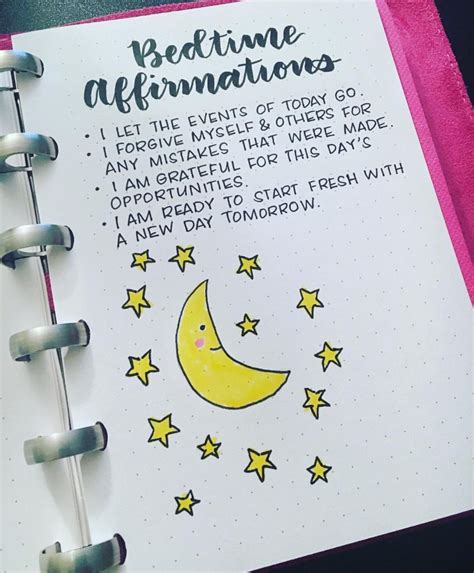 Bedtime
Affirmations
• I LET THE EVENTS OF TODAY GO.
• I FORGIVE MYSELF & OTHERS FOR
ANY MISTAKES THAT WERE MADE.
• I AM GRATEFUL FOR THIS DAY'S
OPPORTUNITIES.
• I AM READY TO START FRESH WITH
A NEW DAY TOMORROW.